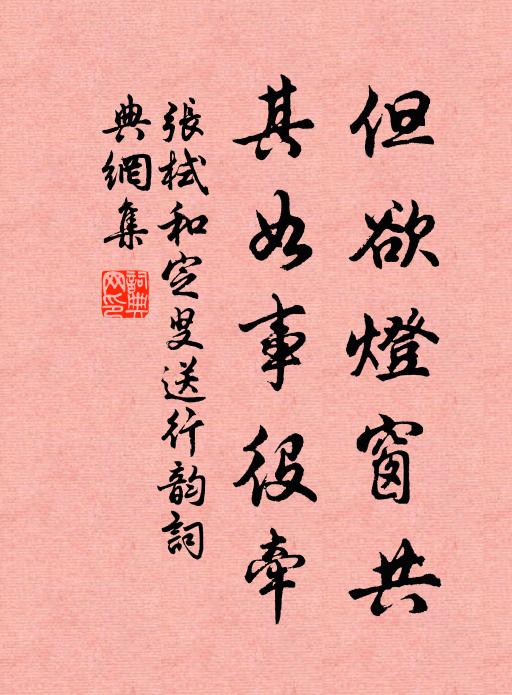 但欲燈窗共
其如事役牽
張栻和定叟送行韵詞
典網集
詞典
網印